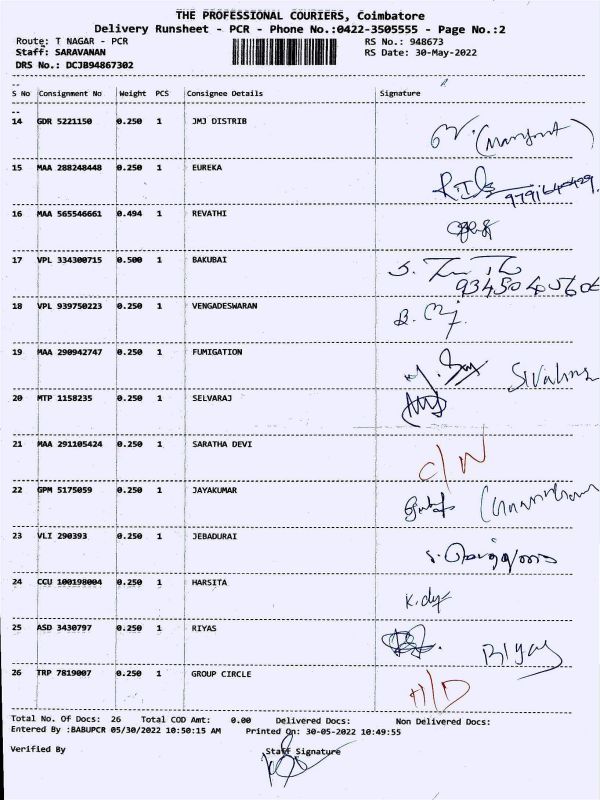 THE PROFESSIONAL COURIERS, Coimbatore
Delivery Runsheet - PCR - Phone No.:0422-3505555 - Page No.:2
Route: T NAGAR - PCR RS No.: 948673
Staff: SARAVANAN RS Date: 30-May-2022
DRS No.: DCJB94867302
S No Consignment No Weight PCS Consignee Details Signature
14 GDR 5221150 0.250 1 JMJ DISTRIB
15 MAA 288248448 0.250 1 EUREKA
16 MAA 565546661 0.494 1 REVATHI
17 VPL 334300715 0.500 1 BAKUBAI
9345040606
18 VPL 939750223 0.250 1 VENGADESWARAN
19 MAA 290942747 0.250 1 FUMIGATION
20 MTP 1158235 0.250 1 SELVARAJ
21 MAA 291105424 0.250 1 SARATHA DEVI
C/N
22 GPM 5175059 0.250 1 JAYAKUMAR
23 VLI 290393 0.250 1 JEBADURAI
24 CCU 100198004 0.250 1 HARSITA
25 ASD 3430797 0.250 1 RIYAS Riyas
26 TRP 7819007 0.250 1 GROUP CIRCLE H/D
Total No. Of Docs: 26 Total COD Amt: 0.00 Delivered Docs: Non Delivered Docs:
Entered By :BABUPCR 05/30/2022 10:50:15 AM Printed On: 30-05-2022 10:49:55
Verified By Staff Signature